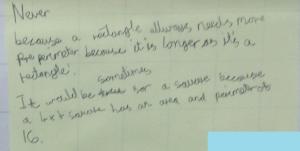 Never
because a rectangle allways needs more
perimeter because it is longer as it's a
rectangle.
sometimes
It would be for a square because
a 4x4 square has an area and perimeter of
16.